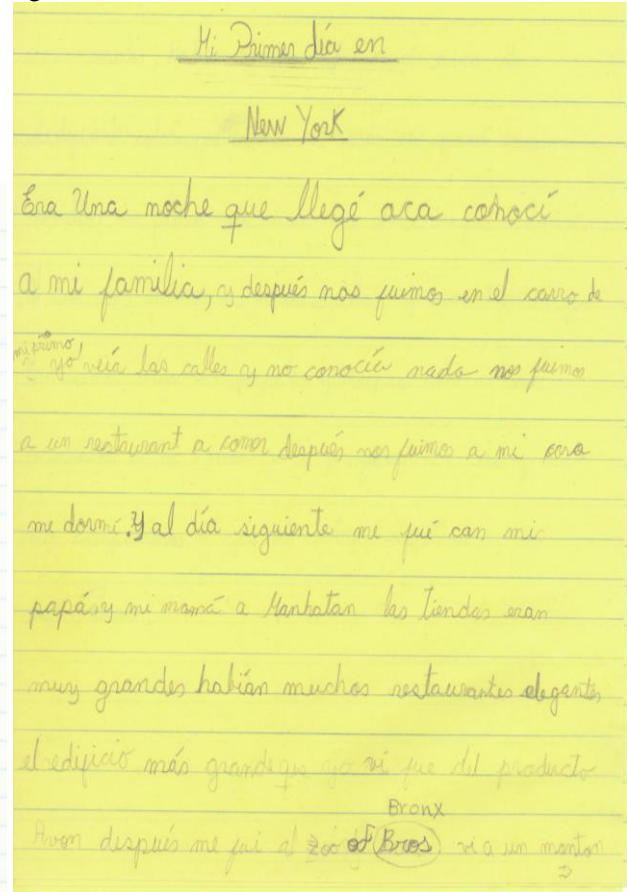 Mi Primer día en
New York
Era Una noche que llegé aca conocí
a mi familia, y después nos fuimos en el carro de
mi primo, y yo veía las calles y no conocía nada nos fuimos
a un restaurant a comer después nos fuimos a mi casa
me dormí. Y al día siguiente me fué con mi
papá y mi mamá a Manhatan las tiendas eran
muy grandes habían muchos restaurantes elegantes
el edificio más grande que yo vi fue del producto
Bronx
Avon después me fui al zoo of Bros vi a un monton